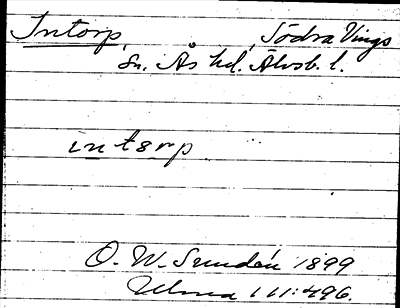 Intorp, Södra Vings
sn. Ås hd. Älvsb. l.
intorp
O. W. Sundén 1899
111:496.